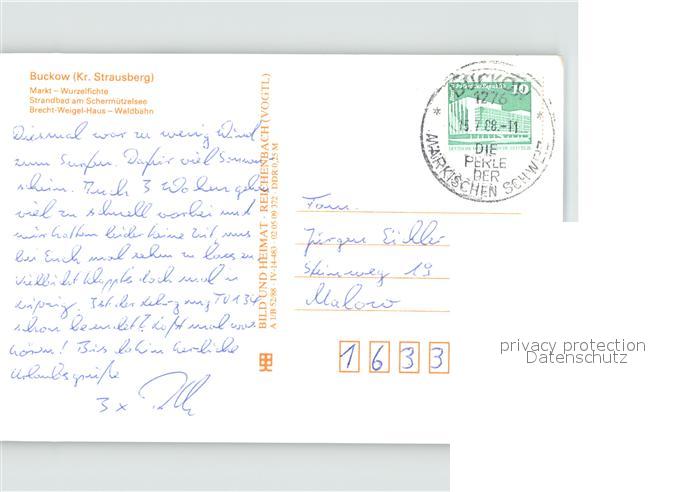 Buckow (Kr. Strausberg)
Markt – Wurzelfichte
Strandbad am Schermützelsee
Brecht-Weigel-Haus – Waldbahn
Diesmal war zu wenig Wind
zum Surfen. Dafür viel Sonnen
schein. Auch 3 Wochen gehn
viel zu schnell vorbei und
wir hatten leider keine Zeit, uns
bei Euch mal sehn zu lassen
vielleicht klappts doch mal in
Leipzig. Ist der Lehrgang TV 134
schon beendet? Laßt mal was
hören! Bis dahin herzliche
Urlaubsgrüße
3 x
BILD UND HEIMAT · REICHENBACH (VOGTL)
A 1/B 52/88 · IV-14-483 · 02 05 09 372 DDR 0,25 M
BUCKOW
1276
15.7.88.-11
DIE
PERLE
DER
MÄRKISCHEN SCHWEIZ
10
Fam.
Jürgen Eichler
Steinweg 19
Malow
1 6 3 3
privacy protection
Datenschutz